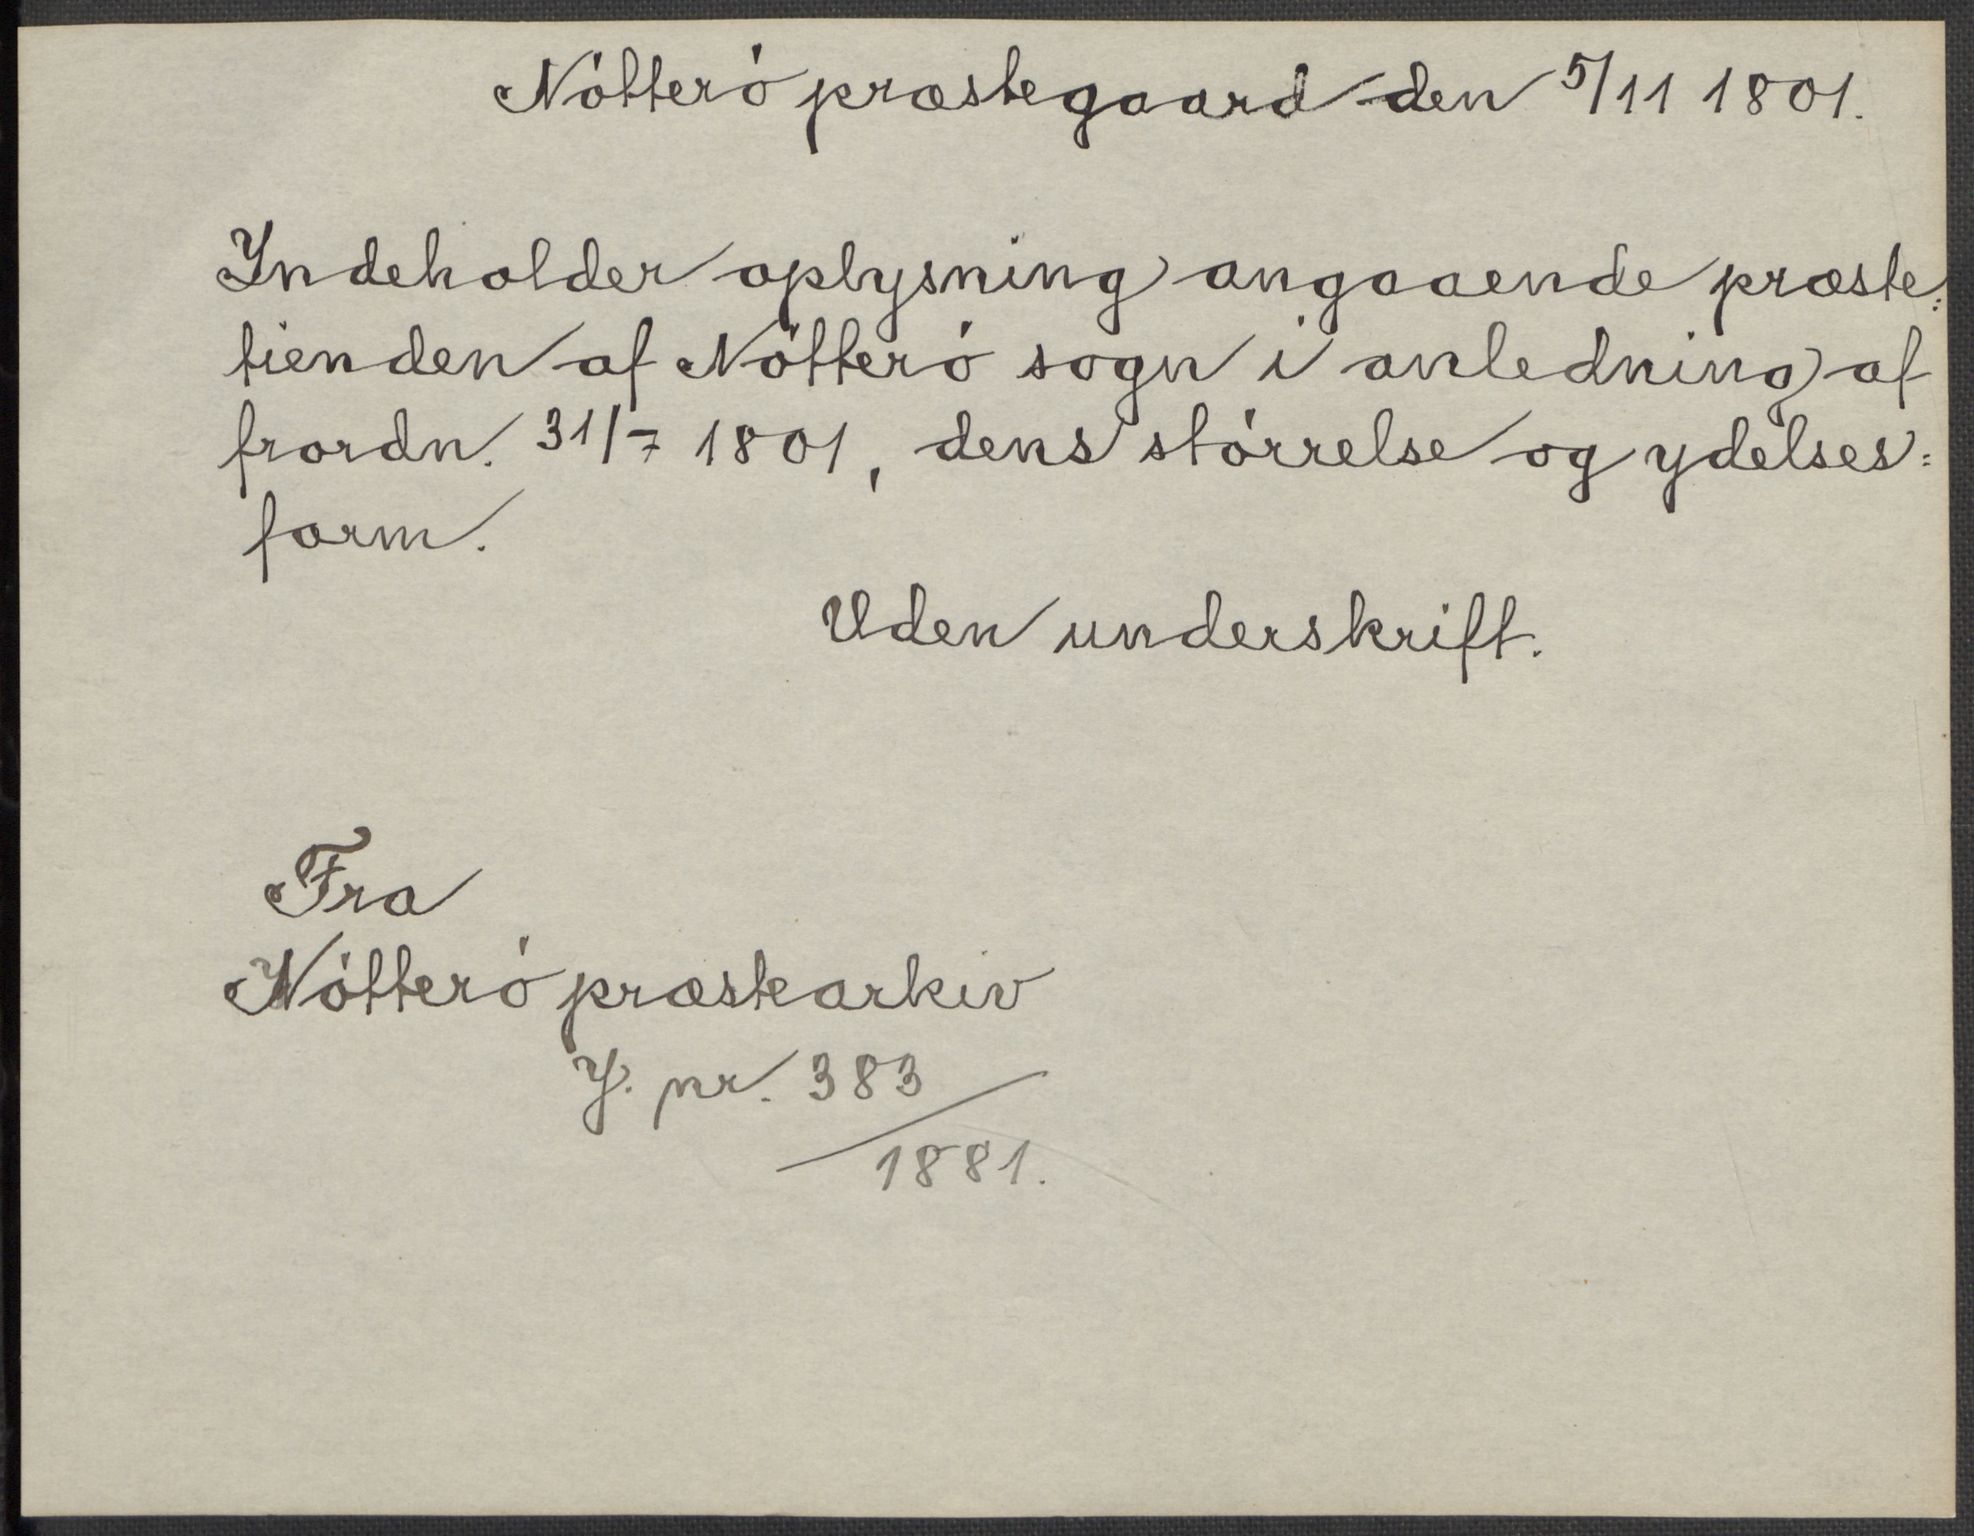 Nótteró præstegaard den 5/11 1801.
Indeholder oplysning angaaende præste=
tienden af Nótteró sogn i anledning af
frordn. 31/7 1801, dens stórrelse og ydelses=
form.
Uden underskrift.
Fra
Nótteró præstearkiv
J. nr. 383
1881.